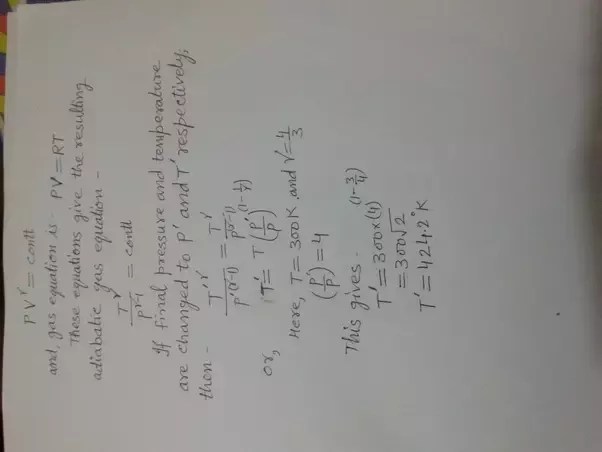 PV^γ = contt
and, gas equation is - PV = RT
These equations give the resulting
adiabatic gas equation -
T^γ / P^(γ-1) = contt
If final pressure and temperature
are changed to P' and T' respectively,
then -
T'^γ / P'^(γ-1) = T^γ / P^(γ-1)
or, T' = T (P'/P)^(1-1/γ)
Here, T = 300K, and γ = 4/3
(P'/P) = 4
This gives -
T' = 300×(4)^(1-3/4)
= 300√2
T' = 424.2°K